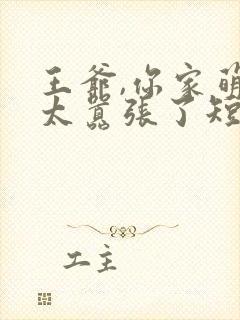 王爺,你家萌
太囂張了短
工主